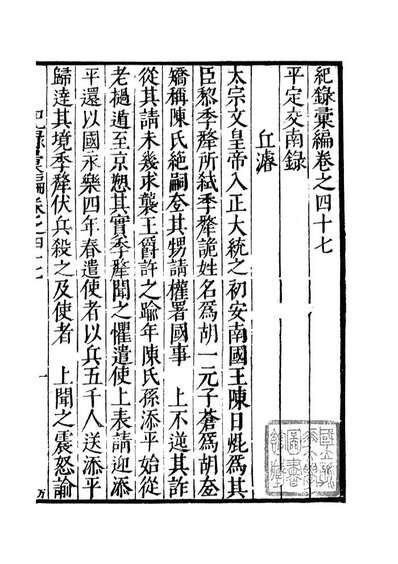 紀錄彙編卷之四十七
平定交南錄
丘濬
太宗文皇帝入正大統之初安南國王陳日焜爲其
臣黎季犛所弑季犛詭姓名爲胡一元子蒼爲胡𡗨
矯稱陳氏絶嗣𡗨其甥請權署國事 上不逆其詐
從其請未幾求襲王爵許之踰年陳氏孫添平始從
老撾遁至京愬其實季犛聞之懼遣使上表請迎添
平還以國永樂四年春遣使者以兵五千人送添平
歸達其境季犛伏兵殺之及使者 上聞之震怒諭
紀錄彙編卷之四十七
一